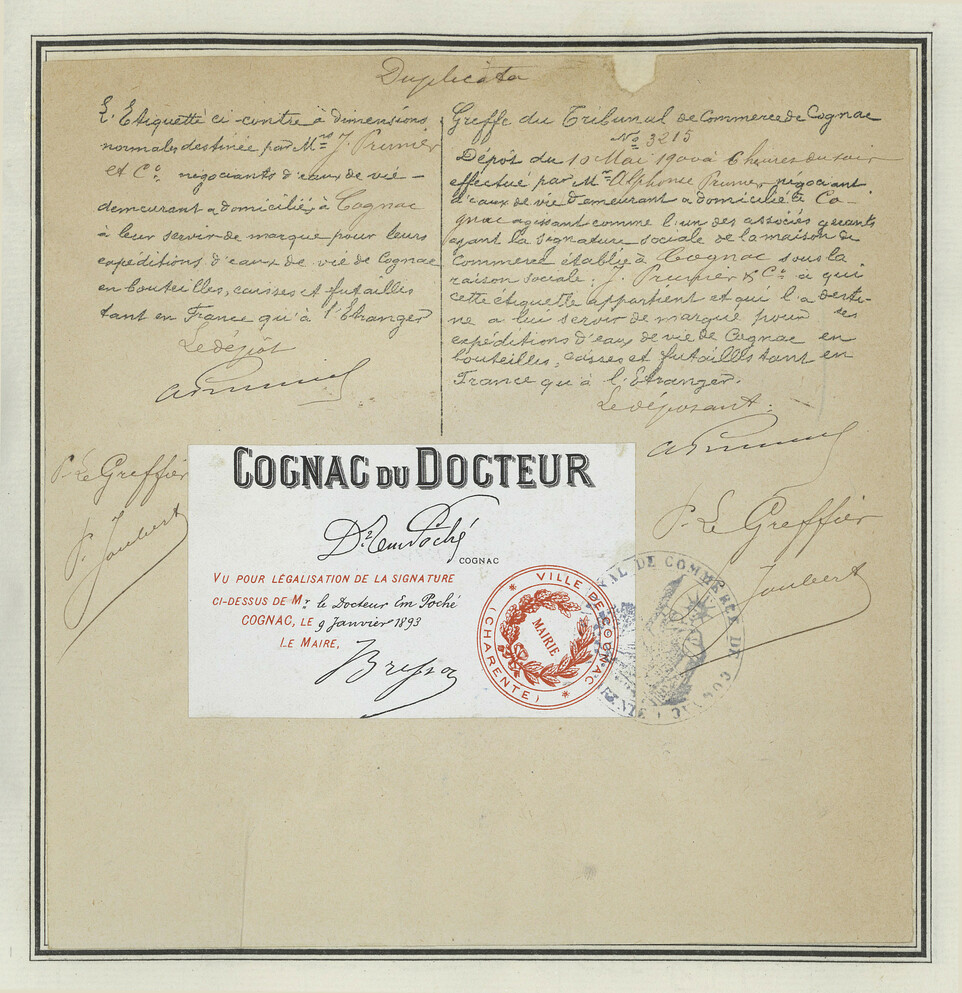 Duplicata
L'Étiquette ci-contre à dimensions
normales destinée par Mrs J. Prunier
et Co. négociants d'eaux de vie -
demeurant & domiciliés à Cognac
à leur servir de marque pour leurs
expéditions d'eaux de vie de Cognac
en bouteilles, caisses et futailles
tant en France qu'à l'Étranger
Le dépôt
P. Le Greffier
P. Joubert
Greffe du Tribunal de Commerce de Cognac
No 3215
Dépôt du 10 Mai 1900 à 6 heures du soir
effectué par Mr Alphonse Prunier négociant
d'eaux de vie demeurant & domicilié à Co-
gnac agissant comme l'un des associés gérants
ayant la signature sociale de la maison de
Commerce établie à Cognac sous la
raison sociale: J. Prunier & Co à qui
cette étiquette appartient et qui l'a desti-
née a lui servir de marque pour ses
expéditions d'eaux de vie de Cognac en
bouteilles, caisses et futailles tant en
France qu'à l'Etranger.
Le déposant:
P. Le Greffier
Joubert
COGNAC DU DOCTEUR
Dr Em Poché
COGNAC
VU POUR LÉGALISATION DE LA SIGNATURE
CI-DESSUS DE Mr. le Docteur Em Poché
COGNAC, LE 9 Janvier 1893
LE MAIRE,
VILLE DE COGNAC
MAIRIE
(CHARENTE)
DE COMMERCE DE COGNAC